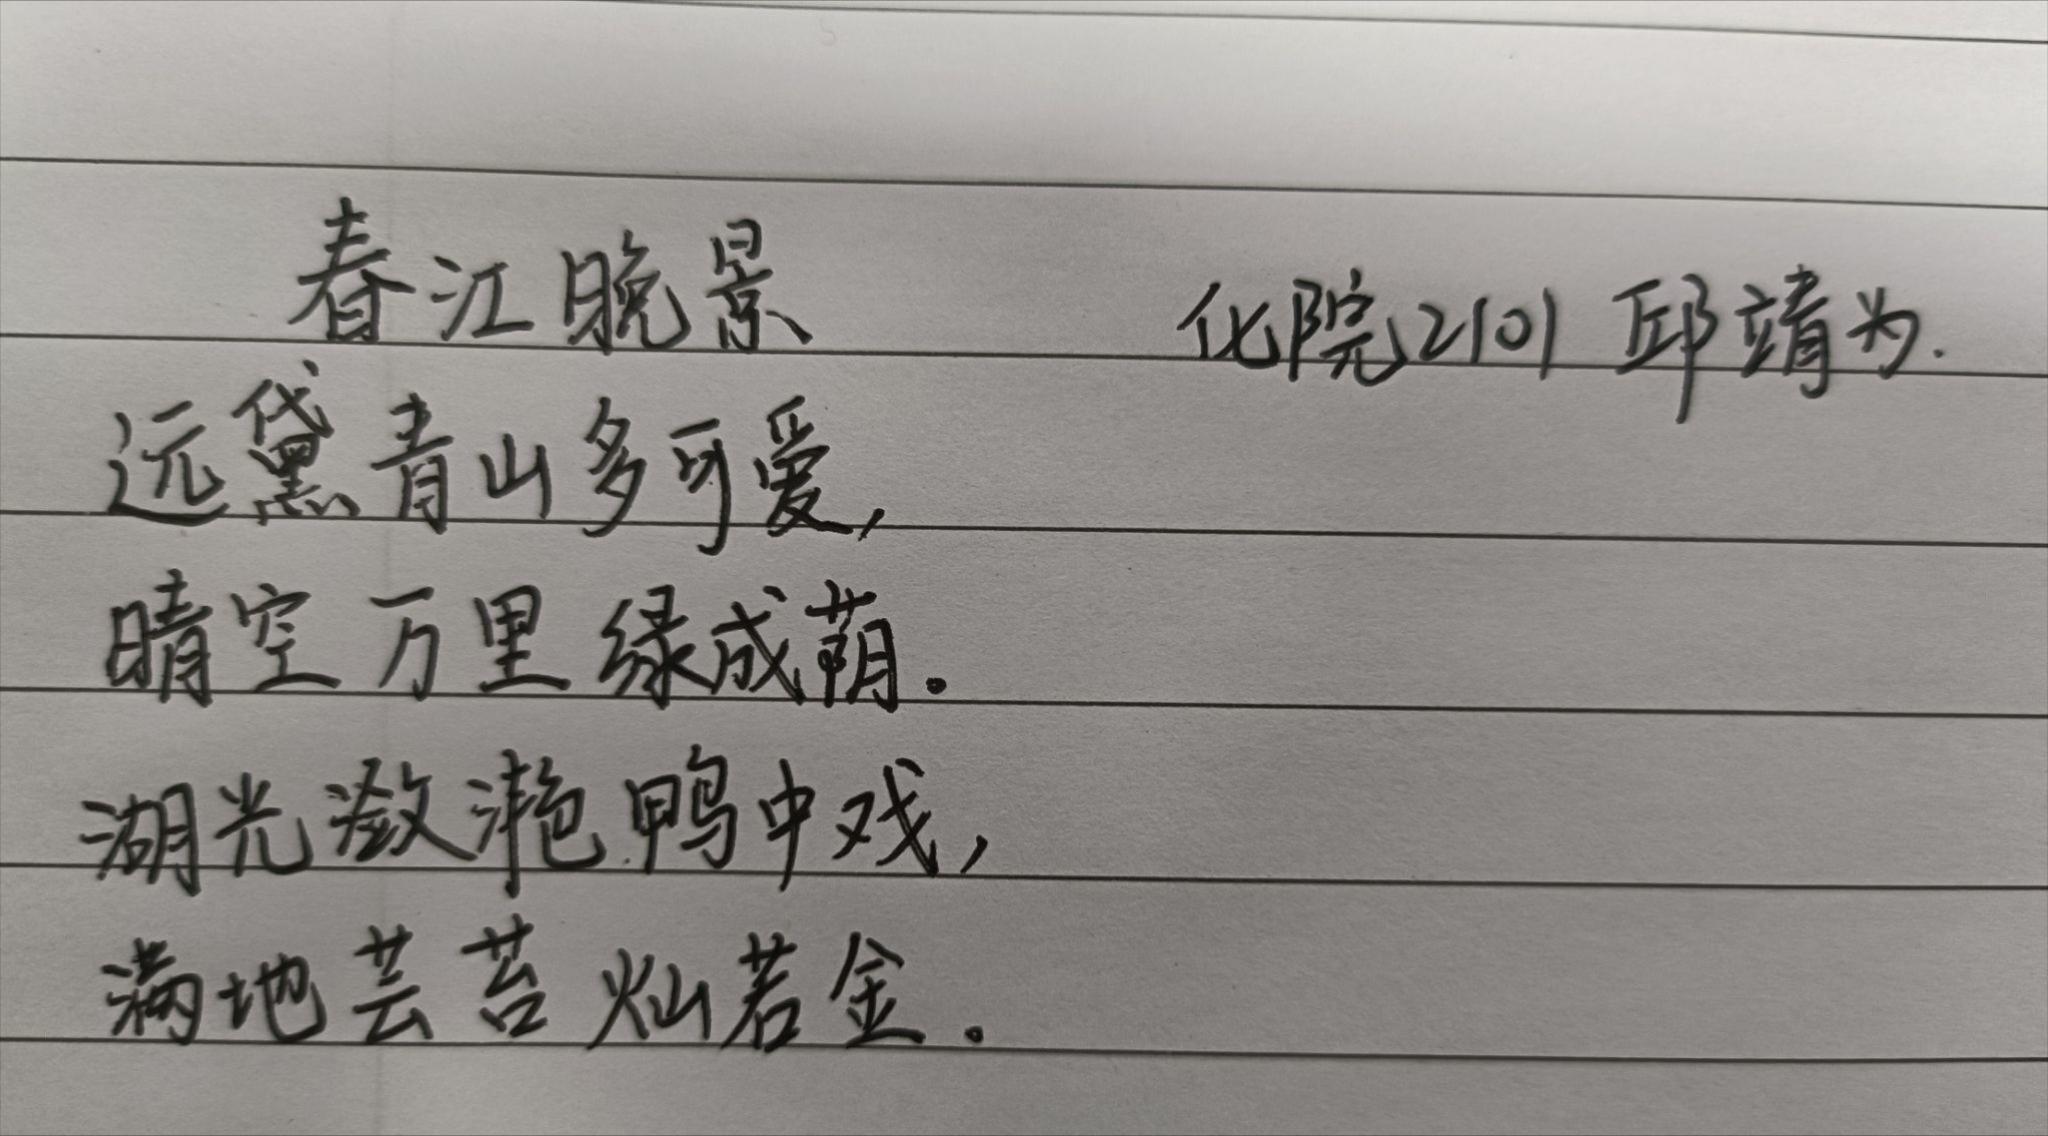 春江晚景 化院2101 邱靖为.
远黛青山多可爱,
晴空万里绿成荫.
湖光潋滟鸭中戏,
满地芸苔灿若金.